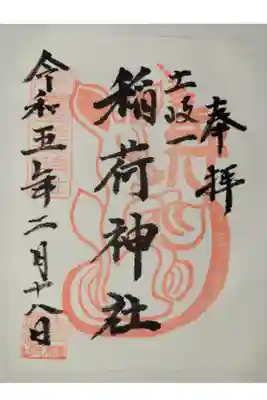 奉拝
稲荷神社
令和五年二月十八日